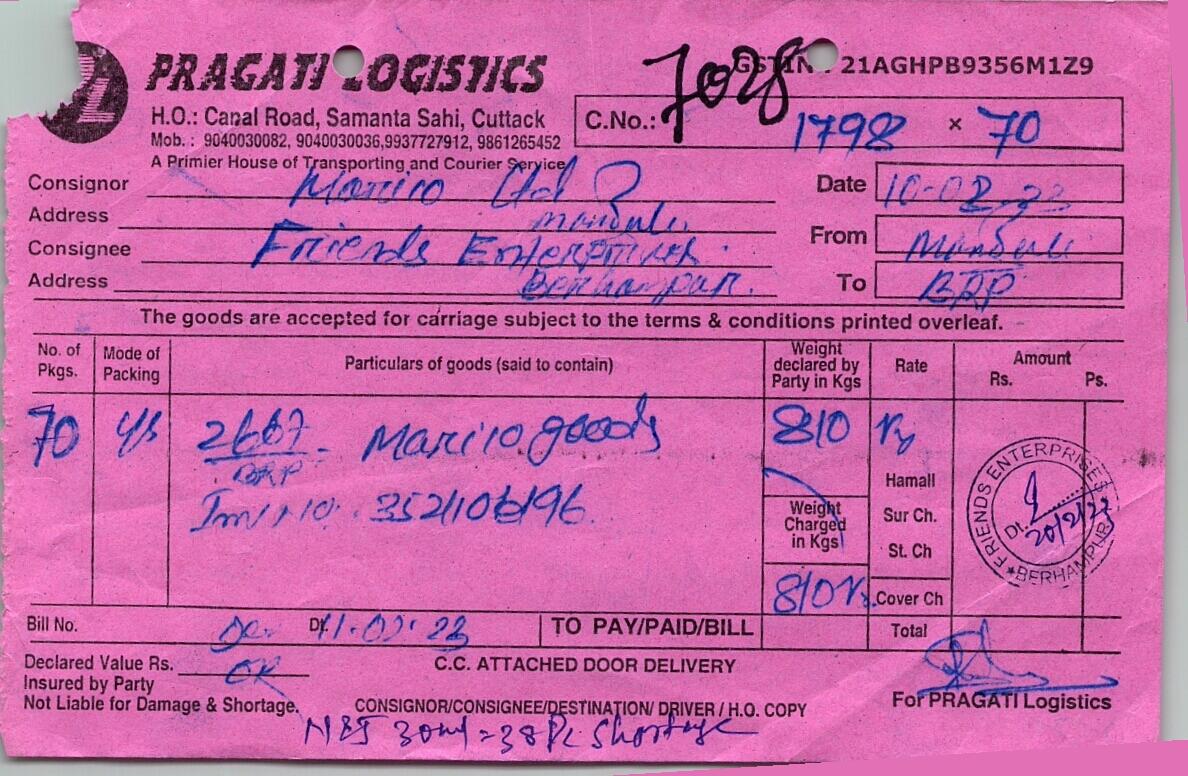 PRAGATI LOGISTICS
GSTIN : 21AGHPB9356M1Z9
7028
H.O.: Canal Road, Samanta Sahi, Cuttack
Mob. : 9040030082, 9040030036,9937727912, 9861265452
A Primier House of Transporting and Courier Service
C.No.: 1798 × 70
Consignor Marico Ltd
Date 10-02-23
Address Manduli
Consignee Friends Enterprises
From Manduli
Address Berhampur.
To BRP
The goods are accepted for carriage subject to the terms & conditions printed overleaf.
No. of Pkgs.
Mode of Packing
Particulars of goods (said to contain)
Weight declared by Party in Kgs
Rate
Amount
Rs. Ps.
70
2667 - Marico goods
BRP
810
Inv. no. 3521106196
Hamall
Weight Charged in Kgs
Sur Ch.
St. Ch
810
Cover Ch
FRIENDS ENTERPRISES
Dt. 20/2/23
BERHAMPUR
Bill No. Dt. 11.02.23
TO PAY/PAID/BILL
Total
Declared Value Rs.
C.C. ATTACHED DOOR DELIVERY
Insured by Party
Not Liable for Damage & Shortage.
CONSIGNOR/CONSIGNEE/DESTINATION/ DRIVER / H.O. COPY
For PRAGATI Logistics
30ml = 38 Pc Shortage